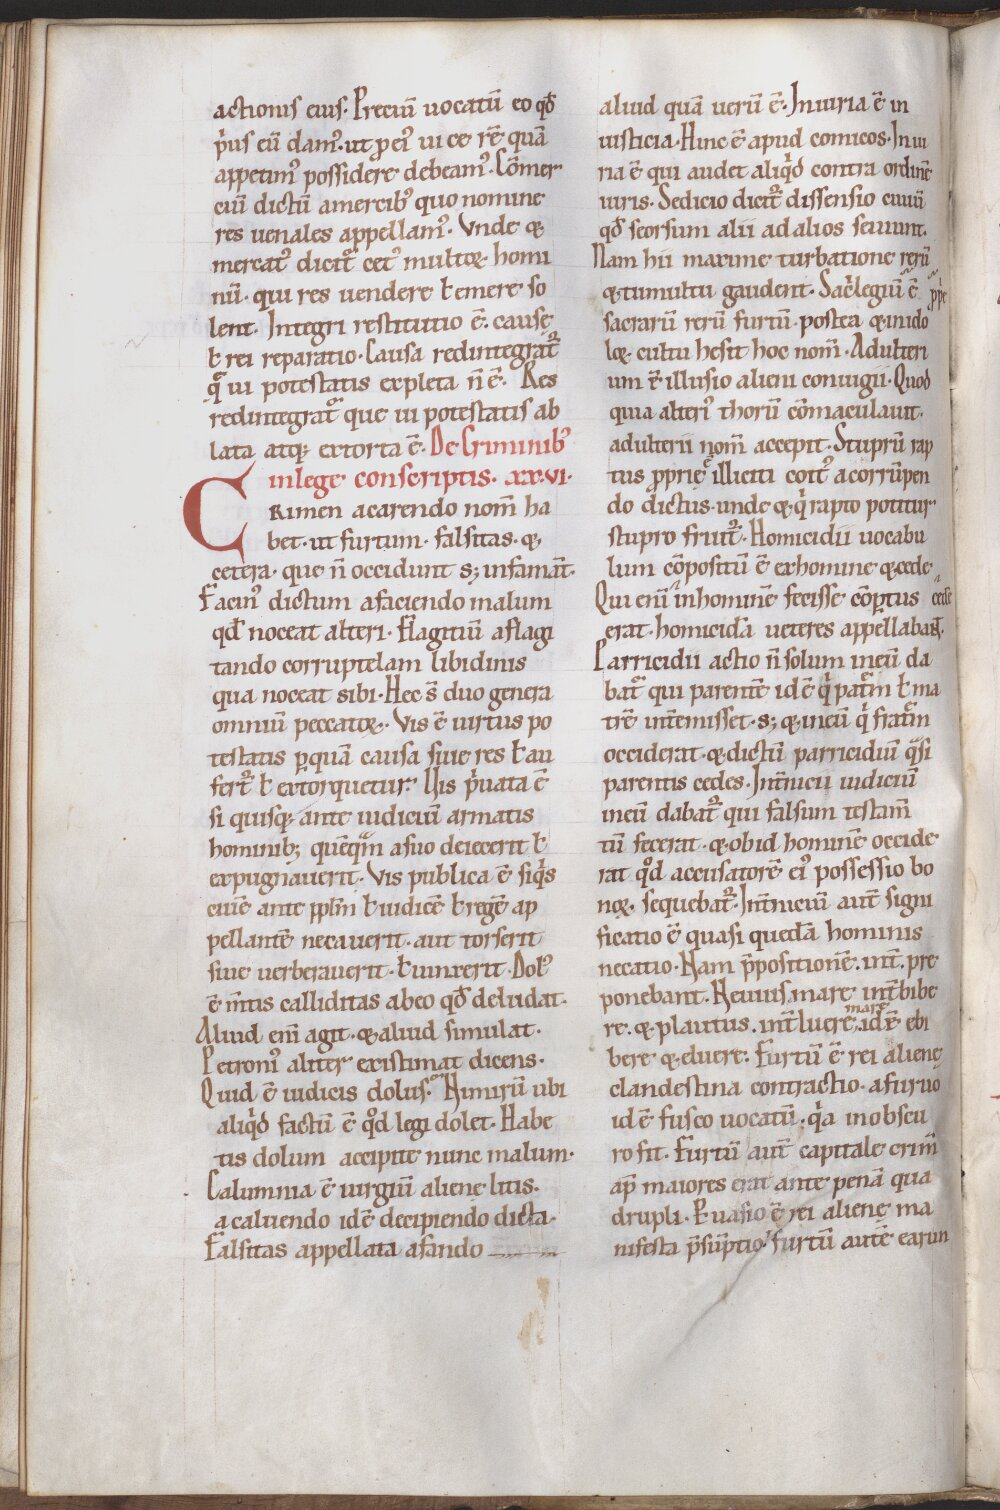 actionis eius. Preciū uocatū eo qđ
p̍us eū dam᷒. ut p̱ ei᷒ uice rē quā
appetim᷒ possidere debeam᷒. Cōmer
ciū dictū amercib᷒ quo nomine
res uenales appellam᷒. Vnde &
mercat᷒ dicit᷑ cet᷒ multoꝝ homi
nū. qui res uendere ł emere so
lent. Integri restitutio ē. causę
ł rei reparatio. Causa redintegrat᷑
q̄ ui potestatis expleta n̄ ē. Res
redintegrat᷑ que ui potestatis ab
lata atq; extorta ē. De Criminib᷒
inlege conscriptis. xx.vi.
CRimen acarendo nom̄ ha
bet. ut furtum. falsitas. &
cetera. que n̄ occidunt s; infamāt.
Facin᷒ dictum afaciendo malum
qđ noceat alteri. Flagitiū aflagi
tando corruptelam libidinis
qua noceat sibi. Hec s̄ duo genera
omniū peccatoꝝ. Vis ē uirtus po
testatis ꝑquā causa siue res ł au
fert᷑ ł extorquetur. Vis p̍uata ē
si quisq; ante iudiciū armatis
hominib; quēqm̄ asuo deiecerit ł
expugnauerit. Vis publica ē siq̍s
ciuē ante pp̄lm̄ ł iudicē ł regē ap
pellantē necauerit. aut torserit
siue uerberauerit. ł uinxerit. Dol᷒
ē m̄tis calliditas abeo qđ deludat.
Aliud em̄ agit. & aliud simulat.
Petroni᷒ aliter existimat dicens.
Quid ē iudicis dolus. Nimirū ubi
aliq̍d factū ē qd̄ legi dolet. Habe
tis dolum accipite nunc malum.
Calumnia ē iurgiū alienę litis.
acaluendo idē decipiendo dicta.
Falsitas appellata afando
aliud quā uerū ē. Iniuria ē in
iusticia. Hinc ē apud comicos. Iniu
ria ē qui audet aliq̍d contra ordinē
iuris. Sedicio dicit᷑ dissensio ciuiū
qđ seorsum alii adalios seuunt.
Nam hii maxime turbatione rerū
& tumultu gaudent. Sac̍legiū ē pp̍e
sacrarū rerū furtū. postea & inido
loꝝ cultu hesit hoc nom̄. Adulteri
um ē illusio alieni coniugii. Quod
quia alteri᷒ thorū cōmaculauit.
adulterii nom̄ accepit. Stuprū rap
tus p̱prię illiciti coit᷒ acorrūpen
do dictus. unde & q̍ rapto potitur
stupro fruit᷑. Homicidii uocabu
lum cōpositū ē exhomine & cede.
Qui eni̅ inhominē fecisse cōꝑtus cede
erat. homicida ueteres appellabant̄.
Parricidii actio n̄ solum ineū da
bat᷑ qui parentē id ē q̍ patrē̄m ł ma
trē int̄emisset. s; & ineū q̍ fratrē̄m
occiderat. & dictū parricidiū q̄si
parentis cedes. Int̄nicii iudiciū
ineū dabat᷑ qui falsum testam̄
tū fecerat. & obid hominē occide
rat qd̄ accusatorē ei᷒ possessio bo
noꝝ sequebat᷑. Int̄niciū aut̄ signi
ficatio ē quasi quedā hominis
necatio. Nam p̄positionē. int̄. pre
ponebant. Neuius mare int̄bibe
re. & plautus. int̄luere mare. id ē ebi
bere & eluere. Furtū ē rei alienę
clandestina contractio. afuruo
id ē fusco uocatū. q̍a inobscu
ro fit. Furtū aut̄ capitale crim̄
ap̄ maiores erat ante penā qua
drupli. Euasio ē rei alienę ma
nifesta p̄sūptio. furtū autē earum